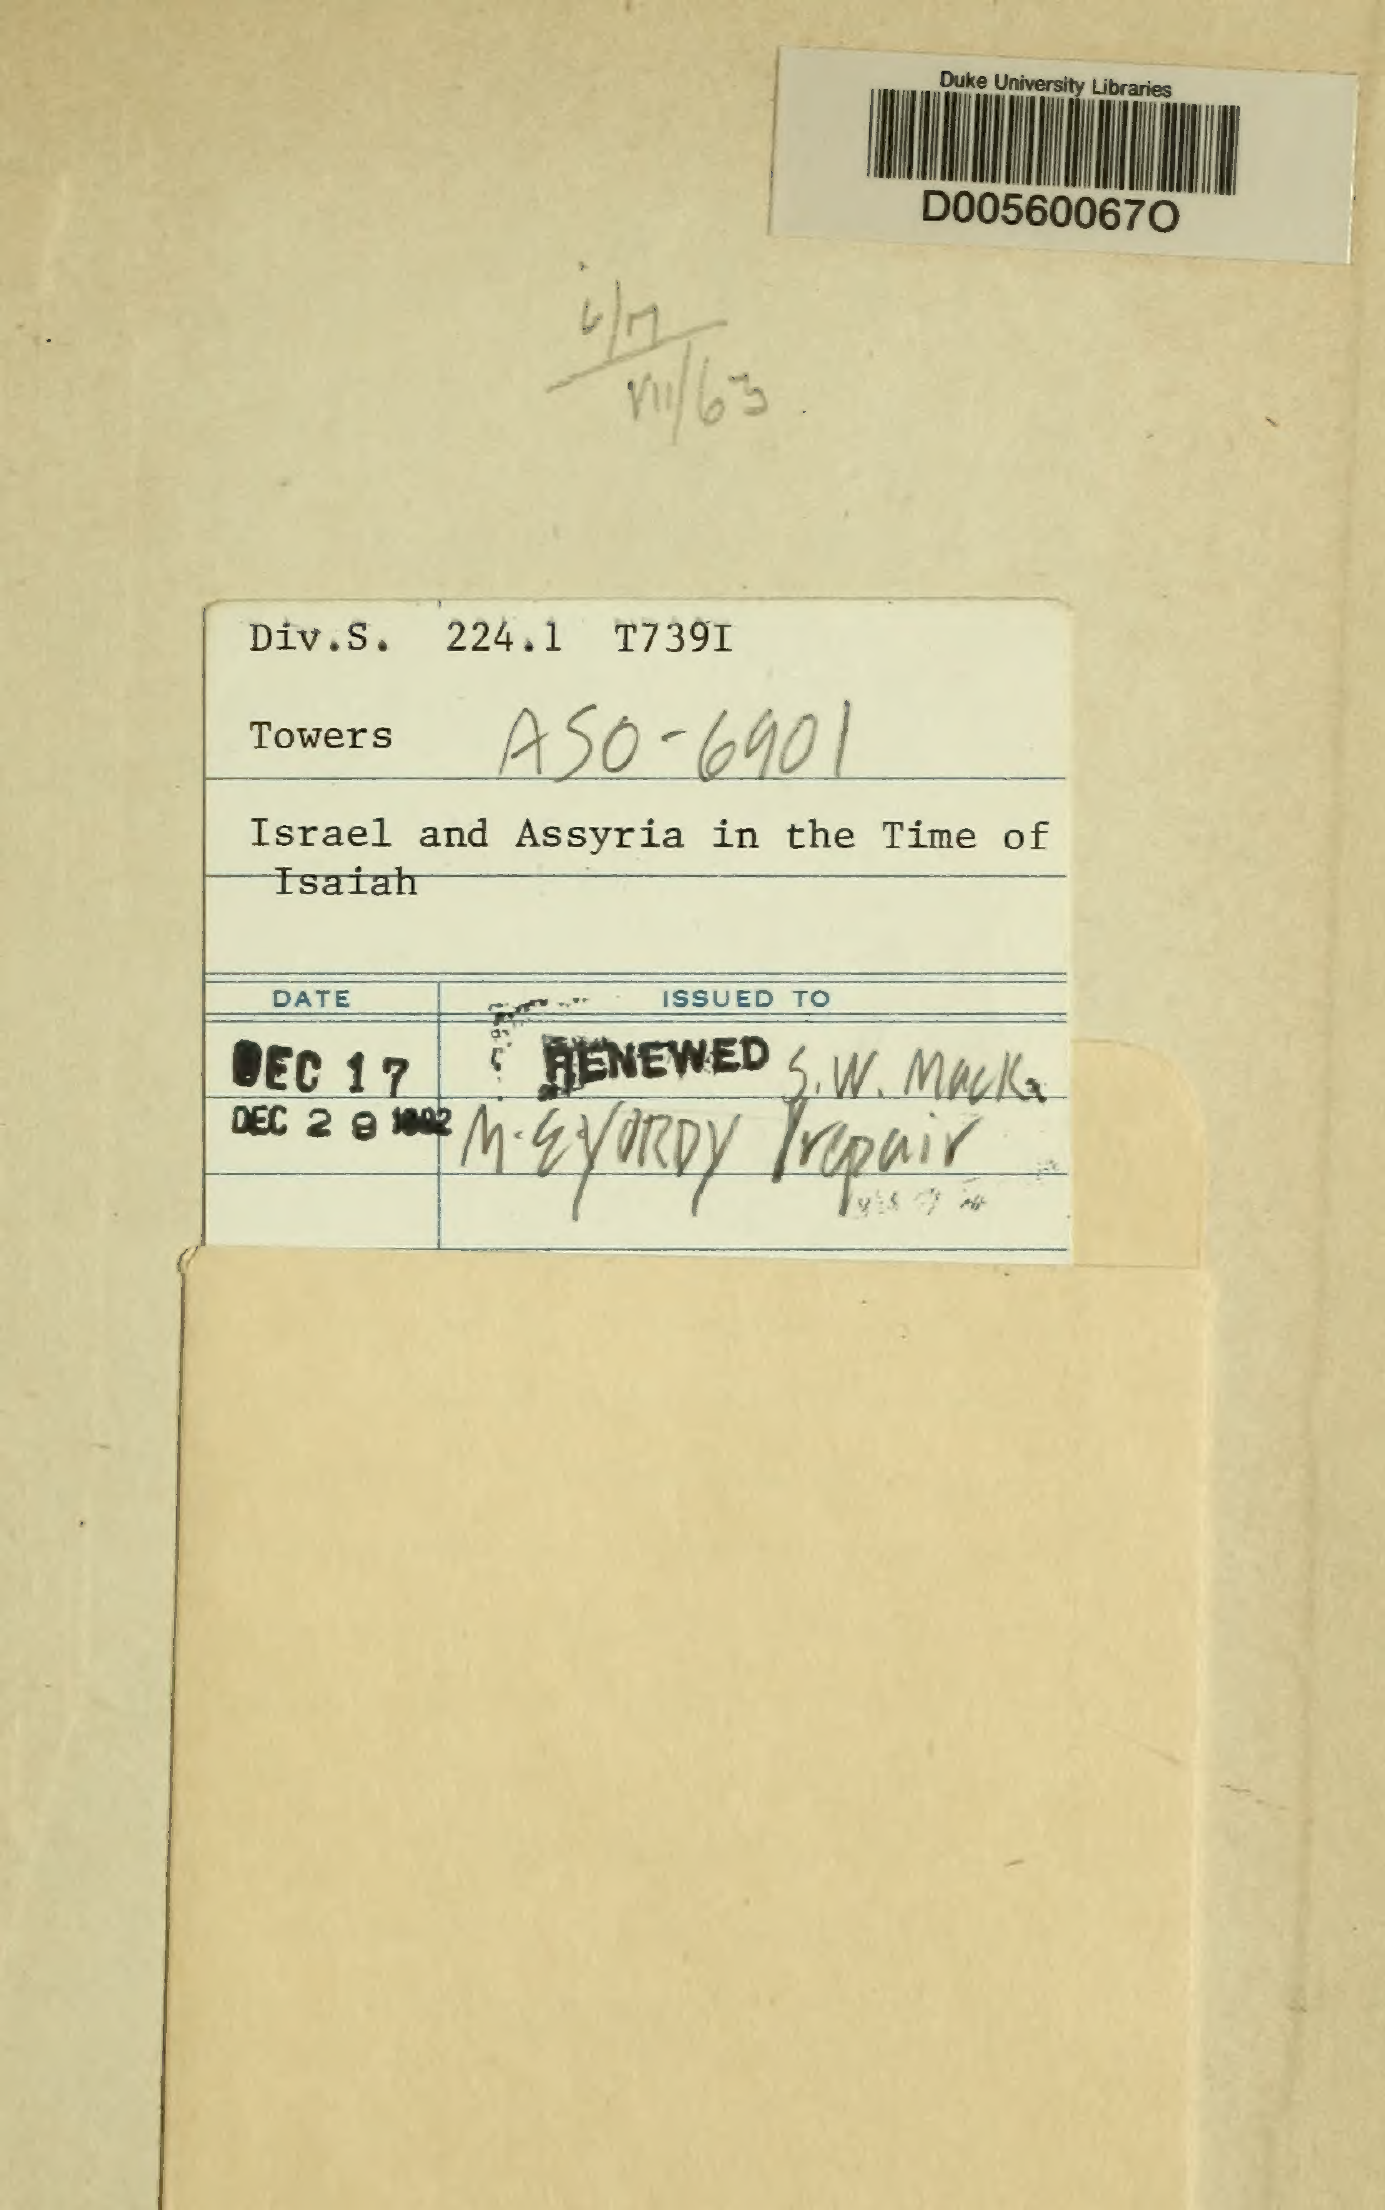 Duke University Libraries
D00560067O
VII/63
Div.S. 224.1 T739I
Towers ASO-6901
Israel and Assyria in the Time of
Isaiah
DATE ISSUED TO
DEC 17 RENEWED S.W. Mack
DEC 28 M. E. YORDY repair